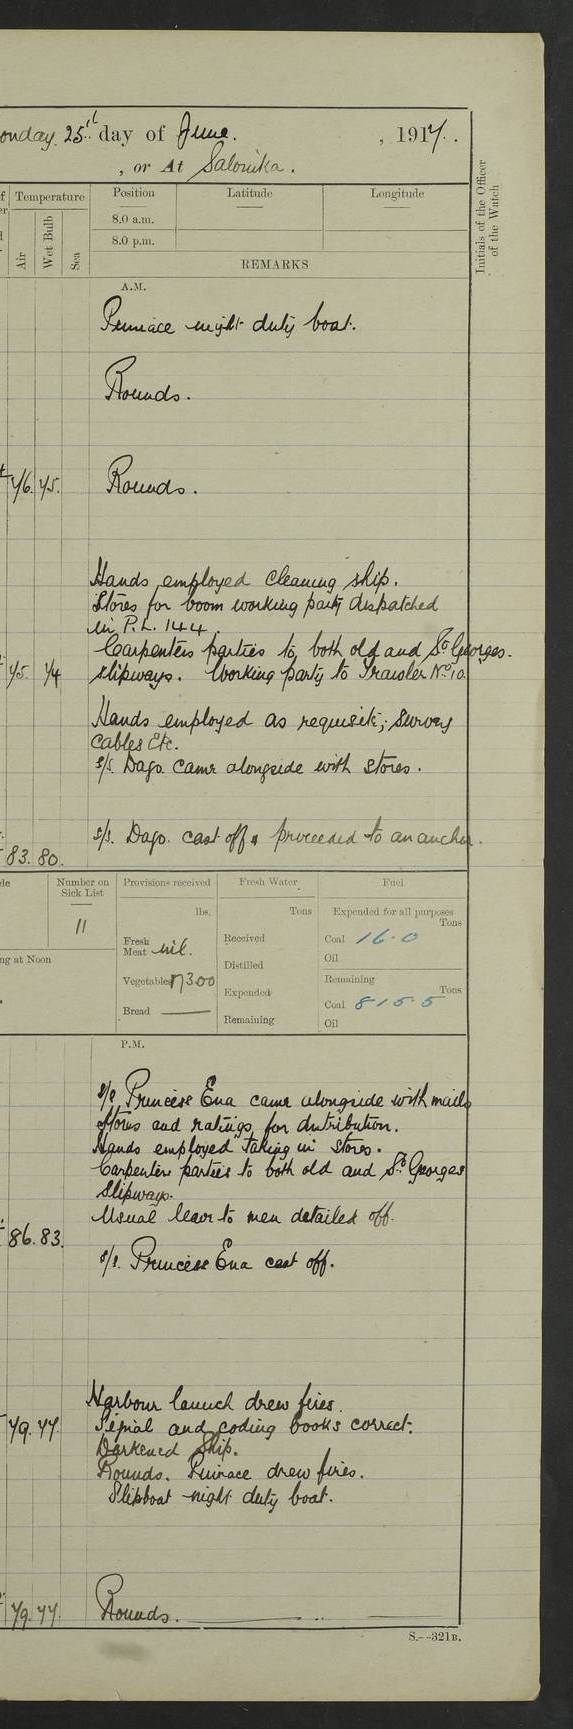 onday 25th day of June. , 1917.
, or At Salonika.
Temperature
Air
Wet Bulb
Sea
Position
Latitude
Longitude
8.0 a.m.
8.0 p.m.
REMARKS
Initials of the Officer
of the Watch
A.M.
Pinnace night duty boat.
Rounds.
76. 75. Rounds.
Hands employed cleaning ship.
Stores for boom working party dispatched
in P.L. 144
Carpenters parties to both old and St Georges
75 74 slipways. Working party to Trawler No 10.
Hands employed as requisite; Survey
cables Etc.
s/s. Dago. came alongside with stores.
s/s. Dago. cast off & proceeded to an anchor.
83. 80.
Number on
Sick List
11
ng at Noon
Provisions received
lbs.
Fresh
Meat nil.
Vegetables 7300
Bread
Fresh Water
Tons
Received
Distilled
Expended
Remaining
Fuel
Expended for all purposes
Tons
Coal 16·0
Oil
Remaining
Tons
Coal 815·5
Oil
P.M.
s/s Princess Ena came alongside with mails
stores and ratings for distribution.
Hands employed taking in stores.
Carpenters parties to both old and St Georges
Slipways.
Usual leave to men detailed off.
86. 83.
s/s. Princess Ena cast off.
Harbour launch drew fires.
79. 77. Signal and coding books correct.
Darkened Ship.
Rounds. Pinnace drew fires.
Slipboat night duty boat.
79. 77. Rounds.
S.—321B.